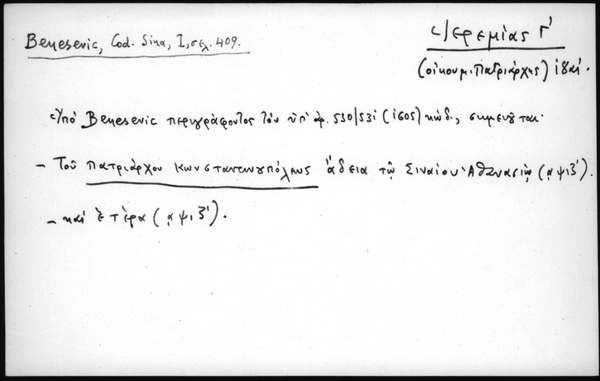 Benesevic, Cod. Sina, I, σελ. 409.
Ἱερεμίας Γ'
(οἰκουμ. Πατριάρχης) ιθαι.
Ὑπὸ Benesevic περιγράφοντος τὸν ὑπ' ἀρ. 530/531 (1605) κώδ., σημειοῦται·
– Τοῦ Πατριάρχου Κωνσταντινουπόλεως ἄδεια τῷ Σιναίου Ἀθανασίῳ (͵αψιζ').
– καὶ ἑτέρα (͵αψιζ').